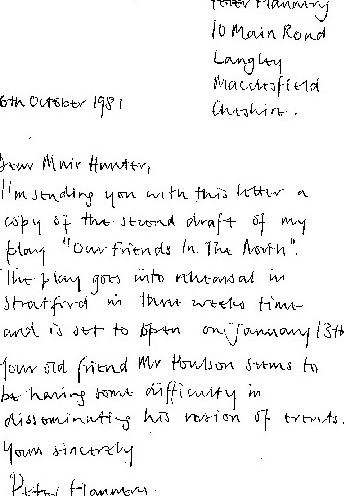 Peter Flannery
10 Main Road
Langley
Macclesfield
Cheshire.
6th October 1981
Dear Muir Hunter,
I'm sending you with this letter a
copy of the second draft of my
play "Our Friends In The North".
The play goes into rehearsal in
Stratford in three weeks time
and is set to open on January 13th
Your old friend Mr Poulson seems to
be having some difficulty in
disseminating his version of events.
Yours sincerely
Peter Flannery.